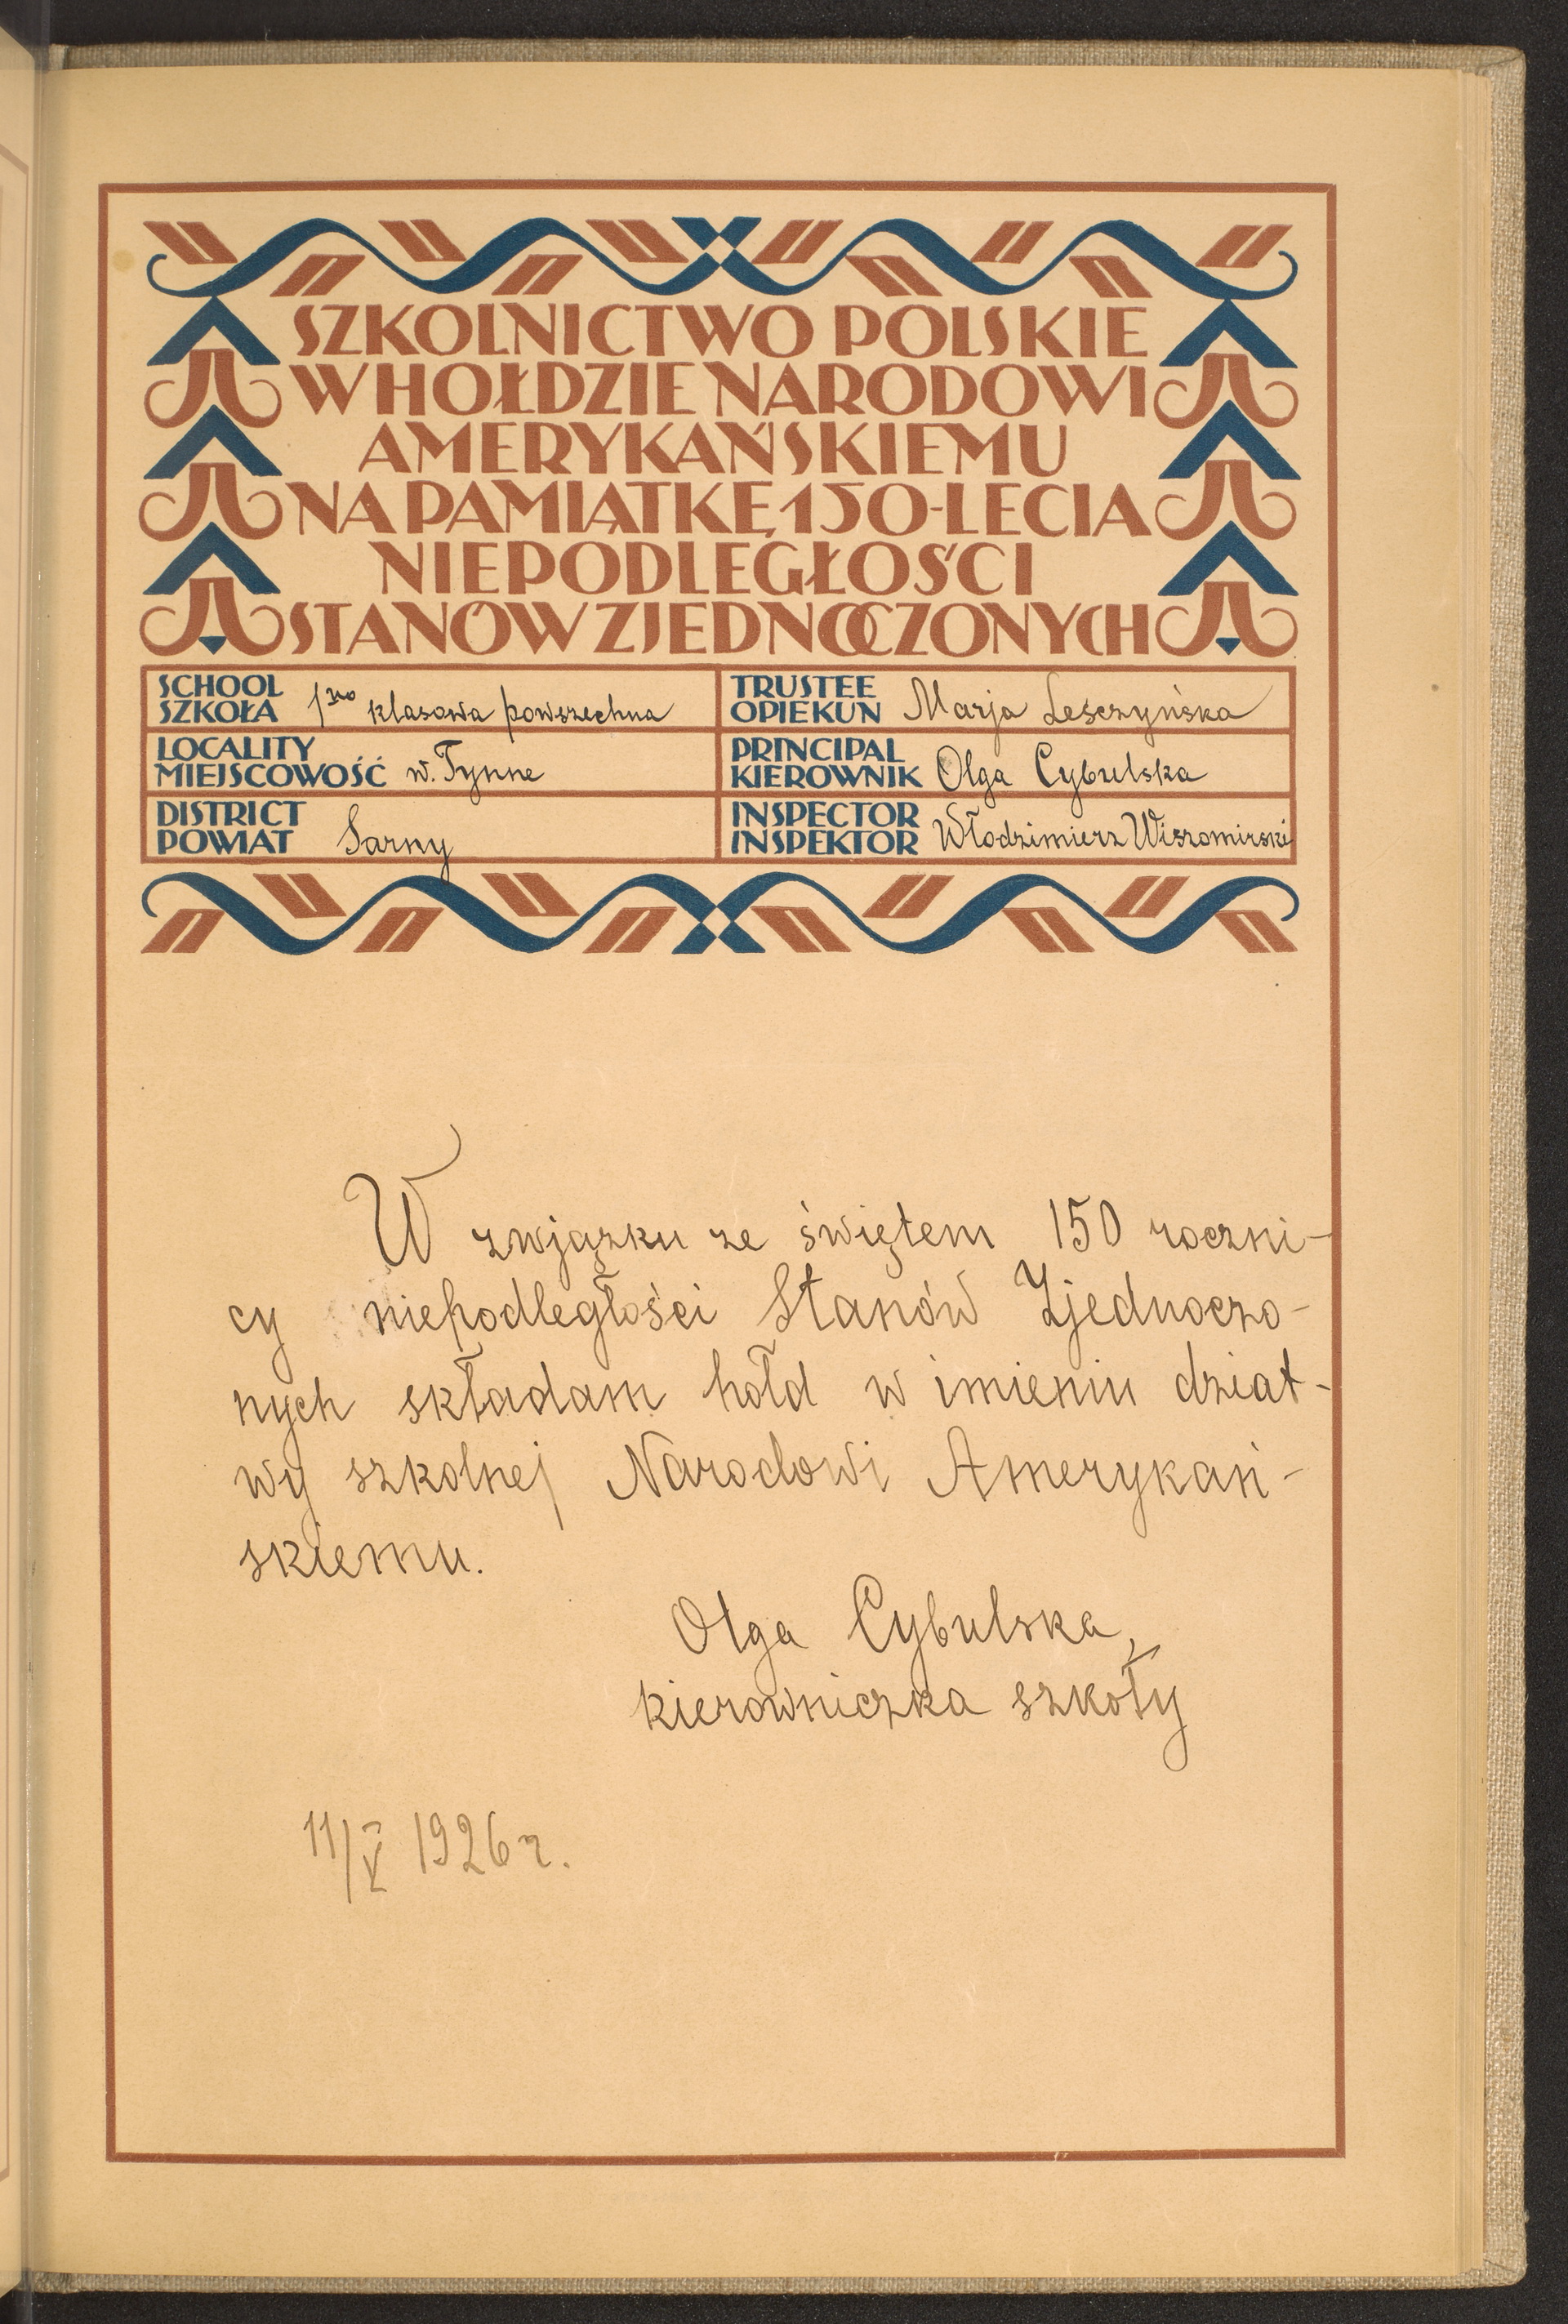 SZKOLNICTWO POLSKIE
W HOŁDZIE NARODOWI
AMERYKAŃSKIEMU
NA PAMIĄTKĘ 150-LECIA
NIEPODLEGŁOŚCI
STANÓW ZJEDNOCZONYCH
SCHOOL
SZKOŁA 1no klasowa powszechna
TRUSTEE
OPIEKUN Marja Leszczyńska
LOCALITY
MIEJSCOWOŚĆ w. Tynne
PRINCIPAL
KIEROWNIK Olga Cybulska
DISTRICT
POWIAT Sarny
INSPECTOR
INSPEKTOR Włodzimierz Wiszomirski
W zwjązku ze świętem 150 roczni-
cy niepodległości Stanów Zjednoczo-
nych składam hołd w imieniu dziat-
wy szkolnej Narodowi Amerykań-
skiemu.
Olga Cybulska,
kierowniczka szkoły
11/V 1926 r.